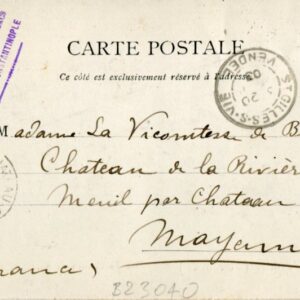 CONSTANTINOPLE
CARTE POSTALE
Ce côté est exclusivement réservé à l'adresse
ST GILLES-S-VIE
VENDÉE
20
03
Madame La Vicomtesse de B
Chateau de la Rivière
Menil par Chateau
Mayenn
rance)
B23040